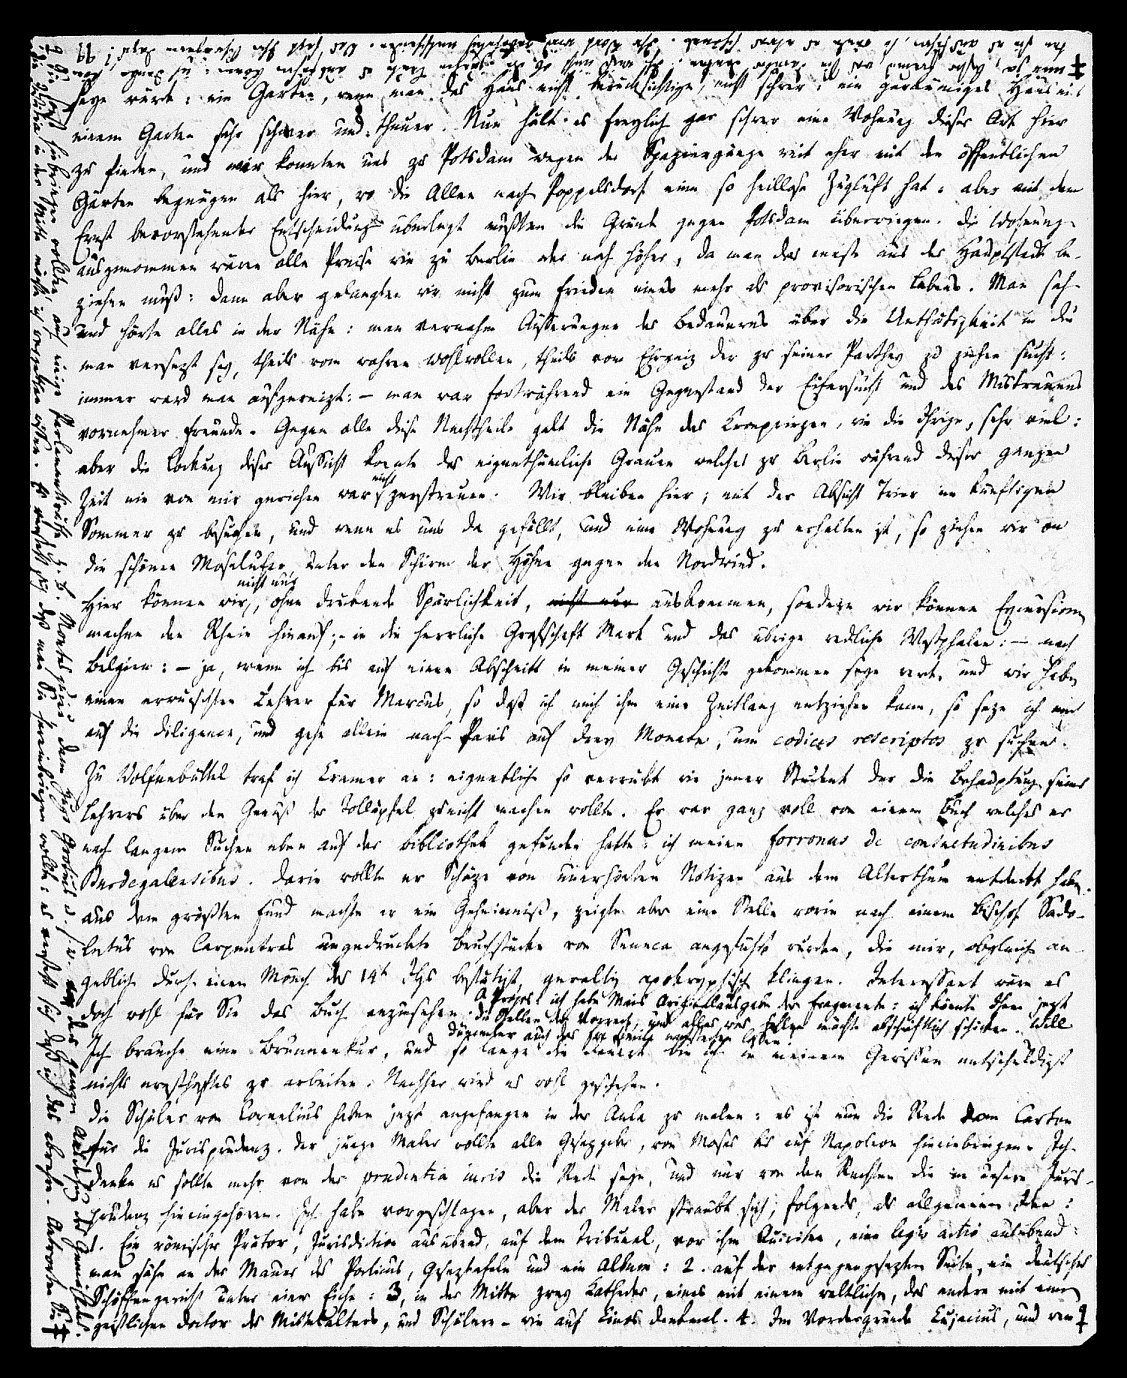 seyn würde: ein Garten, wenn man das Haus nicht berücksichtigt, nicht schwer: ein geräumiges Haus mit
einem Garten sehr schwer und theuer. Nun hält es freylich gar schwer eine Wohnung dieser Art hier
zu finden, und wir konnten uns zu Potsdam wegen der Spaziergänge weit eher mit den öffentlichen
Gärten begnügen als hier, wo die Allee nach Poppelsdorf eine so heillose Zugluft hat: aber mit dem
Ernst bevorstehender Entscheidung überlegt mußten die Gründe gegen Potsdam überwiegen. Die Wohnung
ausgenommen wären alle Preise wie zu Berlin oder noch höher, da man das meiste aus der Hauptstadt be-
ziehen muß: dann aber gelangten wir nicht zum Frieden eines mehr als provisorischen Lebens. Man sah
und hörte alles in der Nähe: man vernahm Äußerungen des Bedauerns über die Unthätigkeit in die
man versezt sey, theils vom wahren Wohlwollen, theils vom Ehrgeiz der zu seiner Parthey zu ziehen sucht:
immer ward man aufgereizt: – man war fortwährend ein Gegenstand der Eifersucht und des Mistrauens
vornehmer Freunde. Gegen alle diese Nachtheile galt die Nähe des Kronprinzen, wie die Ihrige, sehr viel:
aber die Lockung dieser Aussicht konnte das eigenthümliche Grauen welches zu Berlin während dieser ganzen
Zeit nie von mir gewichen war nicht zerstreuen. Wir bleiben hier; mit der Absicht Trier im künftigen
Sommer zu besuchen, und wenn es uns da gefällt, und eine Wohnung zu erhalten ist, so ziehen wir an
die schönen Moselufer unter den Schirm der Höhen gegen den Nordwind.
Hier können wir nicht nur, ohne drückende Spärlichkeit, nicht nur auskommen, sondern wir können Excursionen
machen den Rhein hinauf; – in die herrliche Grafschaft Mark und das übrige redliche Westphalen: – nach
Belgien: – ja, wenn ich bis auf einen Abschnitt in meiner Geschichte gekommen seyn werde, und wir haben
einen erwünschten Lehrer für Marcus, so daß ich mich ihm eine Zeitlang entziehen kann, so seze ich mich
auf die Diligence, und gehe allein nach Paris auf drey Monate, um codices rescriptos zu suchen.
Zu Wolfenbüttel traf ich Cramer an: eigentlich so verrückt wie jener Student der die Behauptung seines
Lehrers über den Genuß der Tolläpfel zunicht machen wollte. Er war ganz voll von einem Buch welches er
nach langem Suchen eben auf der Bibliothek gefunden hatte: ich meine forronus de consuetudinibus
Burdegalensibus. Darin wollte er Schäze von unerhörten Notizen aus dem Alterthum entdeckt haben.
aus dem größten Fund machte er ein Geheimniß, zeigte aber eine Stelle worin nach einem Bischof Sado-
letus von Carpentras ungedruckte Bruchstücke von Seneca angeführt wurden, die mir, obgleich an-
geblich durch einen Mönch des 14t Jhs bestätigt, gewaltig apokryphisch klingen. Interessant wäre es
doch wohl für Sie das Buch anzusehen.
A propos: ich habe Mais Originalausgabe der Fragmente: ich könnte Ihnen jezt
die Stellen der Vorrede, und alles was Ihnen fehlen möchte abschriftlich schicken. Will
Ich brauche eine Brunnenkur, und so lange die währt bin ich in meinem Gewissen entschuldigt
nichts ernsthaftes zu arbeiten. Nachher wird es wohl geschehen.
Die Schüler von Cornelius haben jezt angefangen in der Aula zu malen: es ist nun die Rede vom Carton
für die Jurisprudenz. Der junge Maler wollte alle Gesezgeber, von Moses bis auf Napoleon hineinbringen. Ich
denke es sollte mehr von der prudentia iuris die Rede seyn, und nur von den Rechten die in unsere Juris-
prudenz hineingehören. Ich habe vorgeschlagen, aber der Maler sträubt sich, folgendes, als allgemeine Idee:
1. Ein römischer Prätor, Jurisdiction ausübend, auf dem Tribunal, vor ihm Quiriten, eine legis actio ausübend:
man sähe an der Mauer des Porticus, Geseztafeln und ein Album: 2. auf der entgegengesezten Seite, ein deutsches
Schöffengericht unter einer Eiche: 3, in der Mitte zwey Katheder, eines mit einem weltlichen, das andere mit einem
geistlichen Doctor des Mittelalters, und Schülern – wie auf Cinos Denkmal. 4. Im Vordergrunde Cujacius, und wen